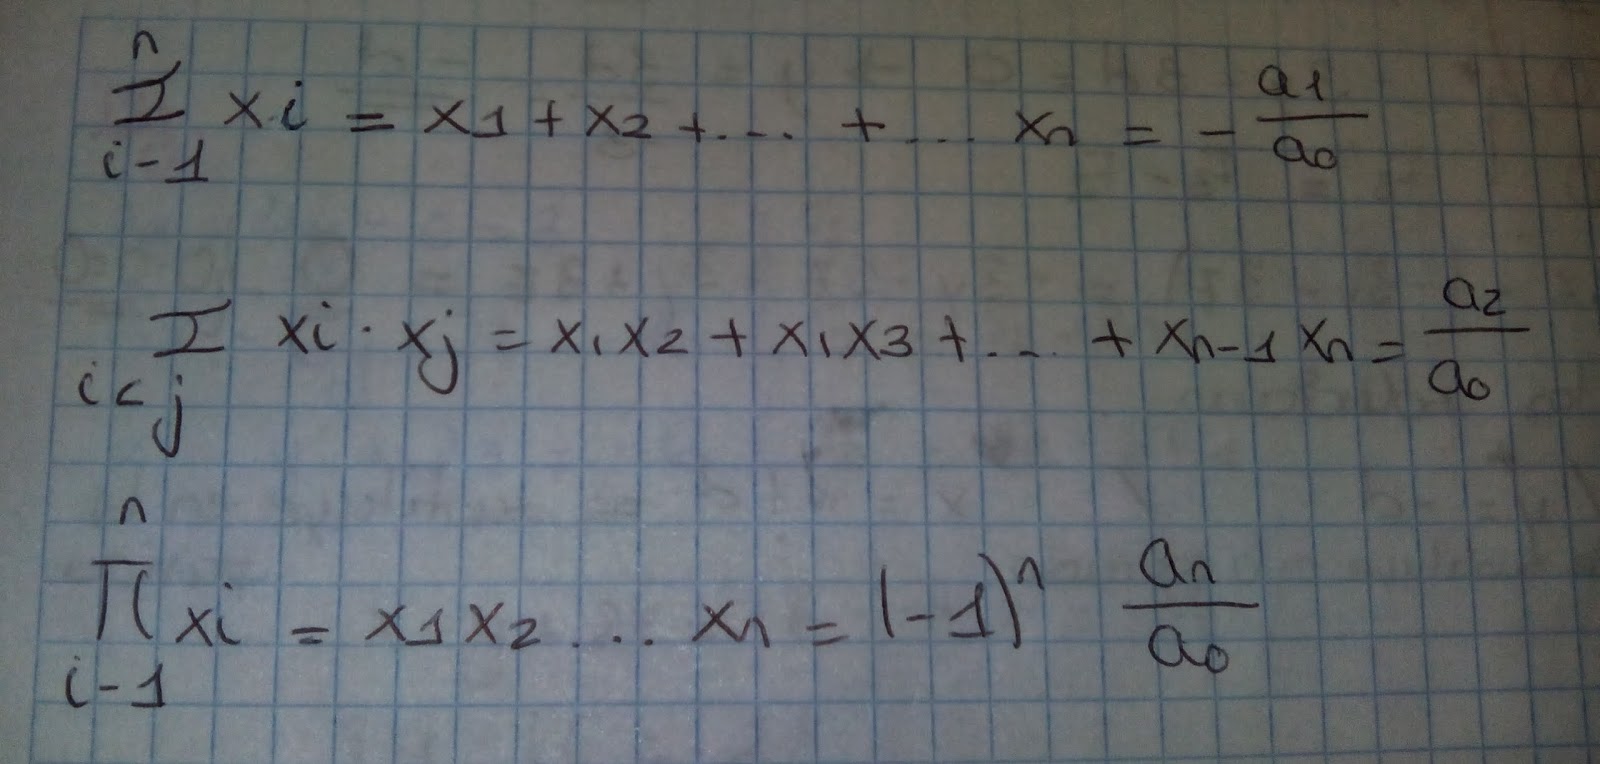 n
Σ xi = x1 + x2 + ... + ... xn = - a1/a0
i-1
Σ xi · xj = x1x2 + x1x3 + ... + xn-1 xn = a2/a0
i<j
n
Π xi = x1x2 ... xn = (-1)^n an/a0
i-1